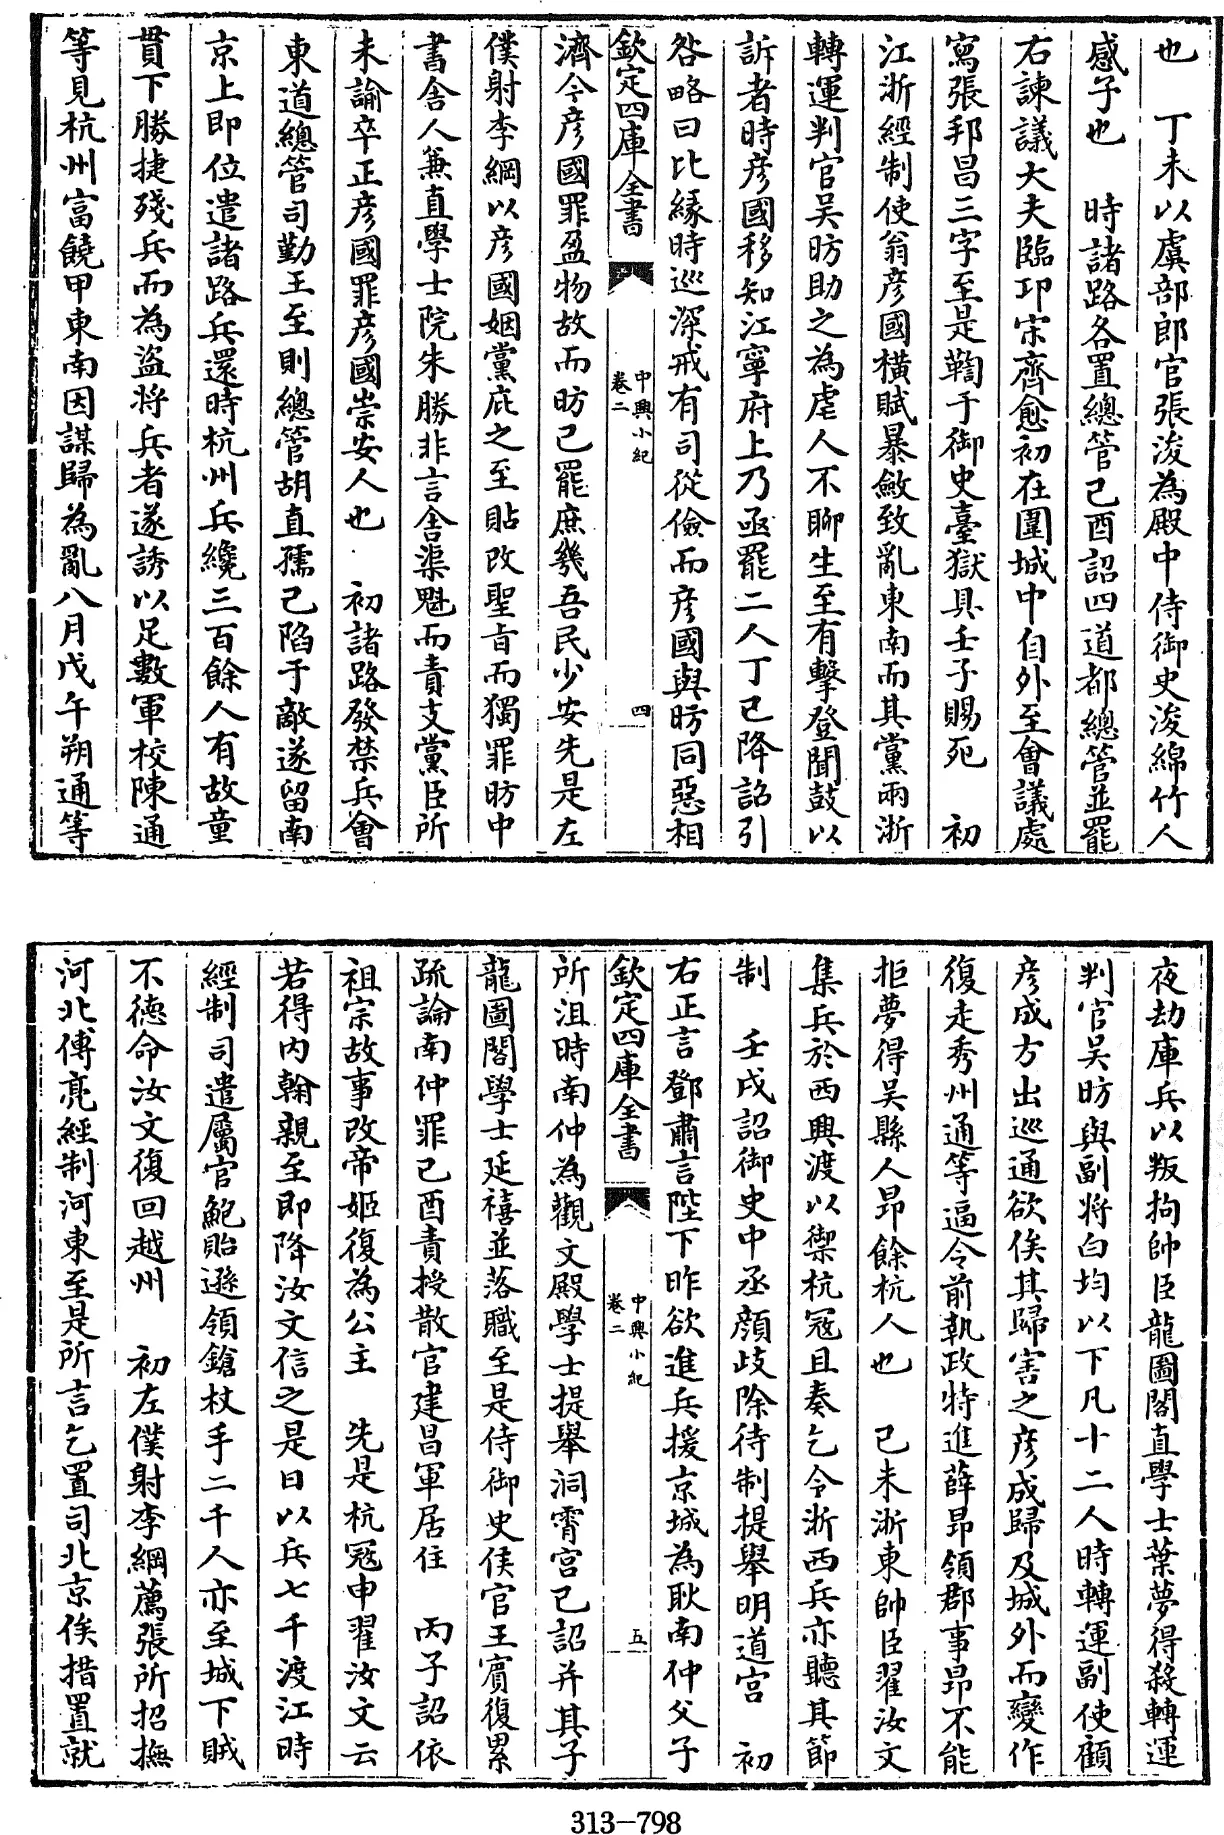 也　丁未以虞部郎官張浚為殿中侍御史浚綿竹人
感子也　時諸路各置總管己酉詔四道都總管並罷
右諫議大夫臨卭宋齊愈初在圍城中自外至會議處
寫張邦昌三字至是鞫于御史臺獄具壬子賜死　初
江浙經制使翁彦國橫賦暴斂致亂東南而其黨兩浙
轉運判官吴昉助之為虐人不聊生至有擊登聞鼓以
訴者時彦國移知江寧府上乃亟罷二人丁巳降詔引
咎略曰比緣時巡深戒有司從儉而彦國與昉同惡相
欽定四庫全書
中興小紀
卷二
四
濟今彦國罪盈物故而昉已罷庶幾吾民少安先是左
僕射李綱以彦國姻黨庇之至貼改聖旨而獨罪昉中
書舍人兼直學士院朱勝非言舍渠魁而責支黨臣所
未諭卒正彦國罪彦國崇安人也　初諸路發禁兵會
東道總管司勤王至則總管胡直孺已陷于敵遂留南
京上即位遣諸路兵還時杭州兵纔三百餘人有故童
貫下勝捷殘兵而為盗將兵者遂誘以足數軍校陳通
等見杭州富饒甲東南因謀歸為亂八月戊午朔通等
夜劫庫兵以叛拘帥臣龍圖閣直學士葉夢得殺轉運
判官吴昉與副將白均以下凡十二人時轉運副使顧
彦成方出巡通欲俟其歸害之彦成歸及城外而變作
復走秀州通等逼令前執政特進薛昂領郡事昂不能
拒夢得吴縣人昂餘杭人也　己未浙東帥臣翟汝文
集兵於西興渡以禦杭冦且奏乞令浙西兵亦聽其節
制　壬戌詔御史中丞顔岐除待制提舉明道宫　初
右正言鄧肅言陛下昨欲進兵援京城為耿南仲父子
欽定四庫全書
中興小紀
卷二
五
所沮時南仲為觀文殿學士提舉洞霄宫已詔并其子
龍圖閣學士延禧並落職至是侍御史侯官王賔復累
疏論南仲罪己酉責授散官建昌軍居住　丙子詔依
祖宗故事改帝姬復為公主　先是杭冦申翟汝文云
若得内翰親至即降汝文信之是日以兵七千渡江時
經制司遣屬官鮑貽遜領鎗杖手二千人亦至城下賊
不德命汝文復回越州　初左僕射李綱薦張所招撫
河北傅亮經制河東至是所言乞置司北京俟措置就
313-798